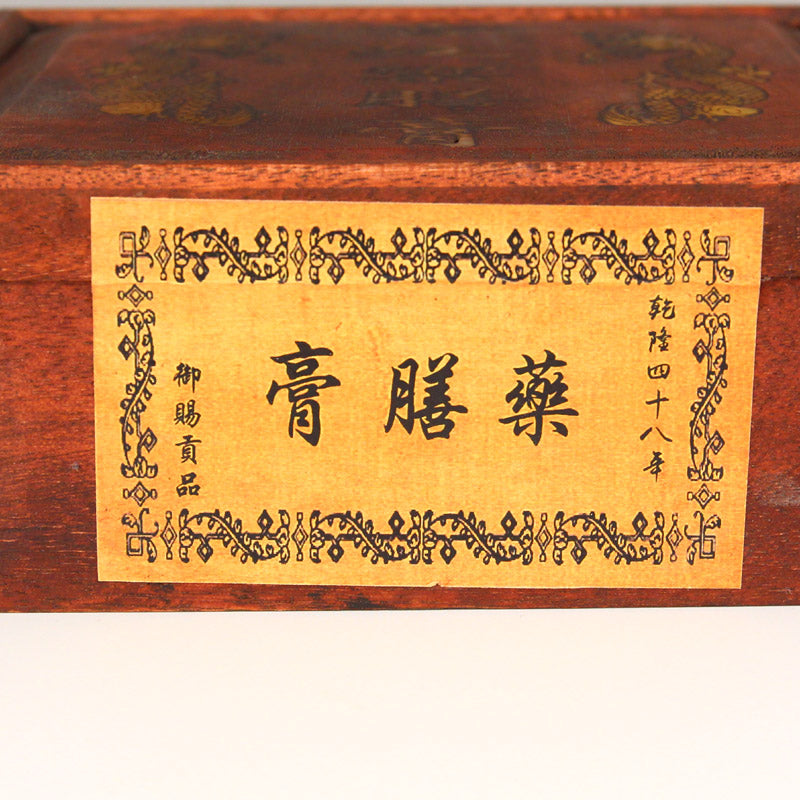 乾隆四十八年
藥膳膏
御賜貢品